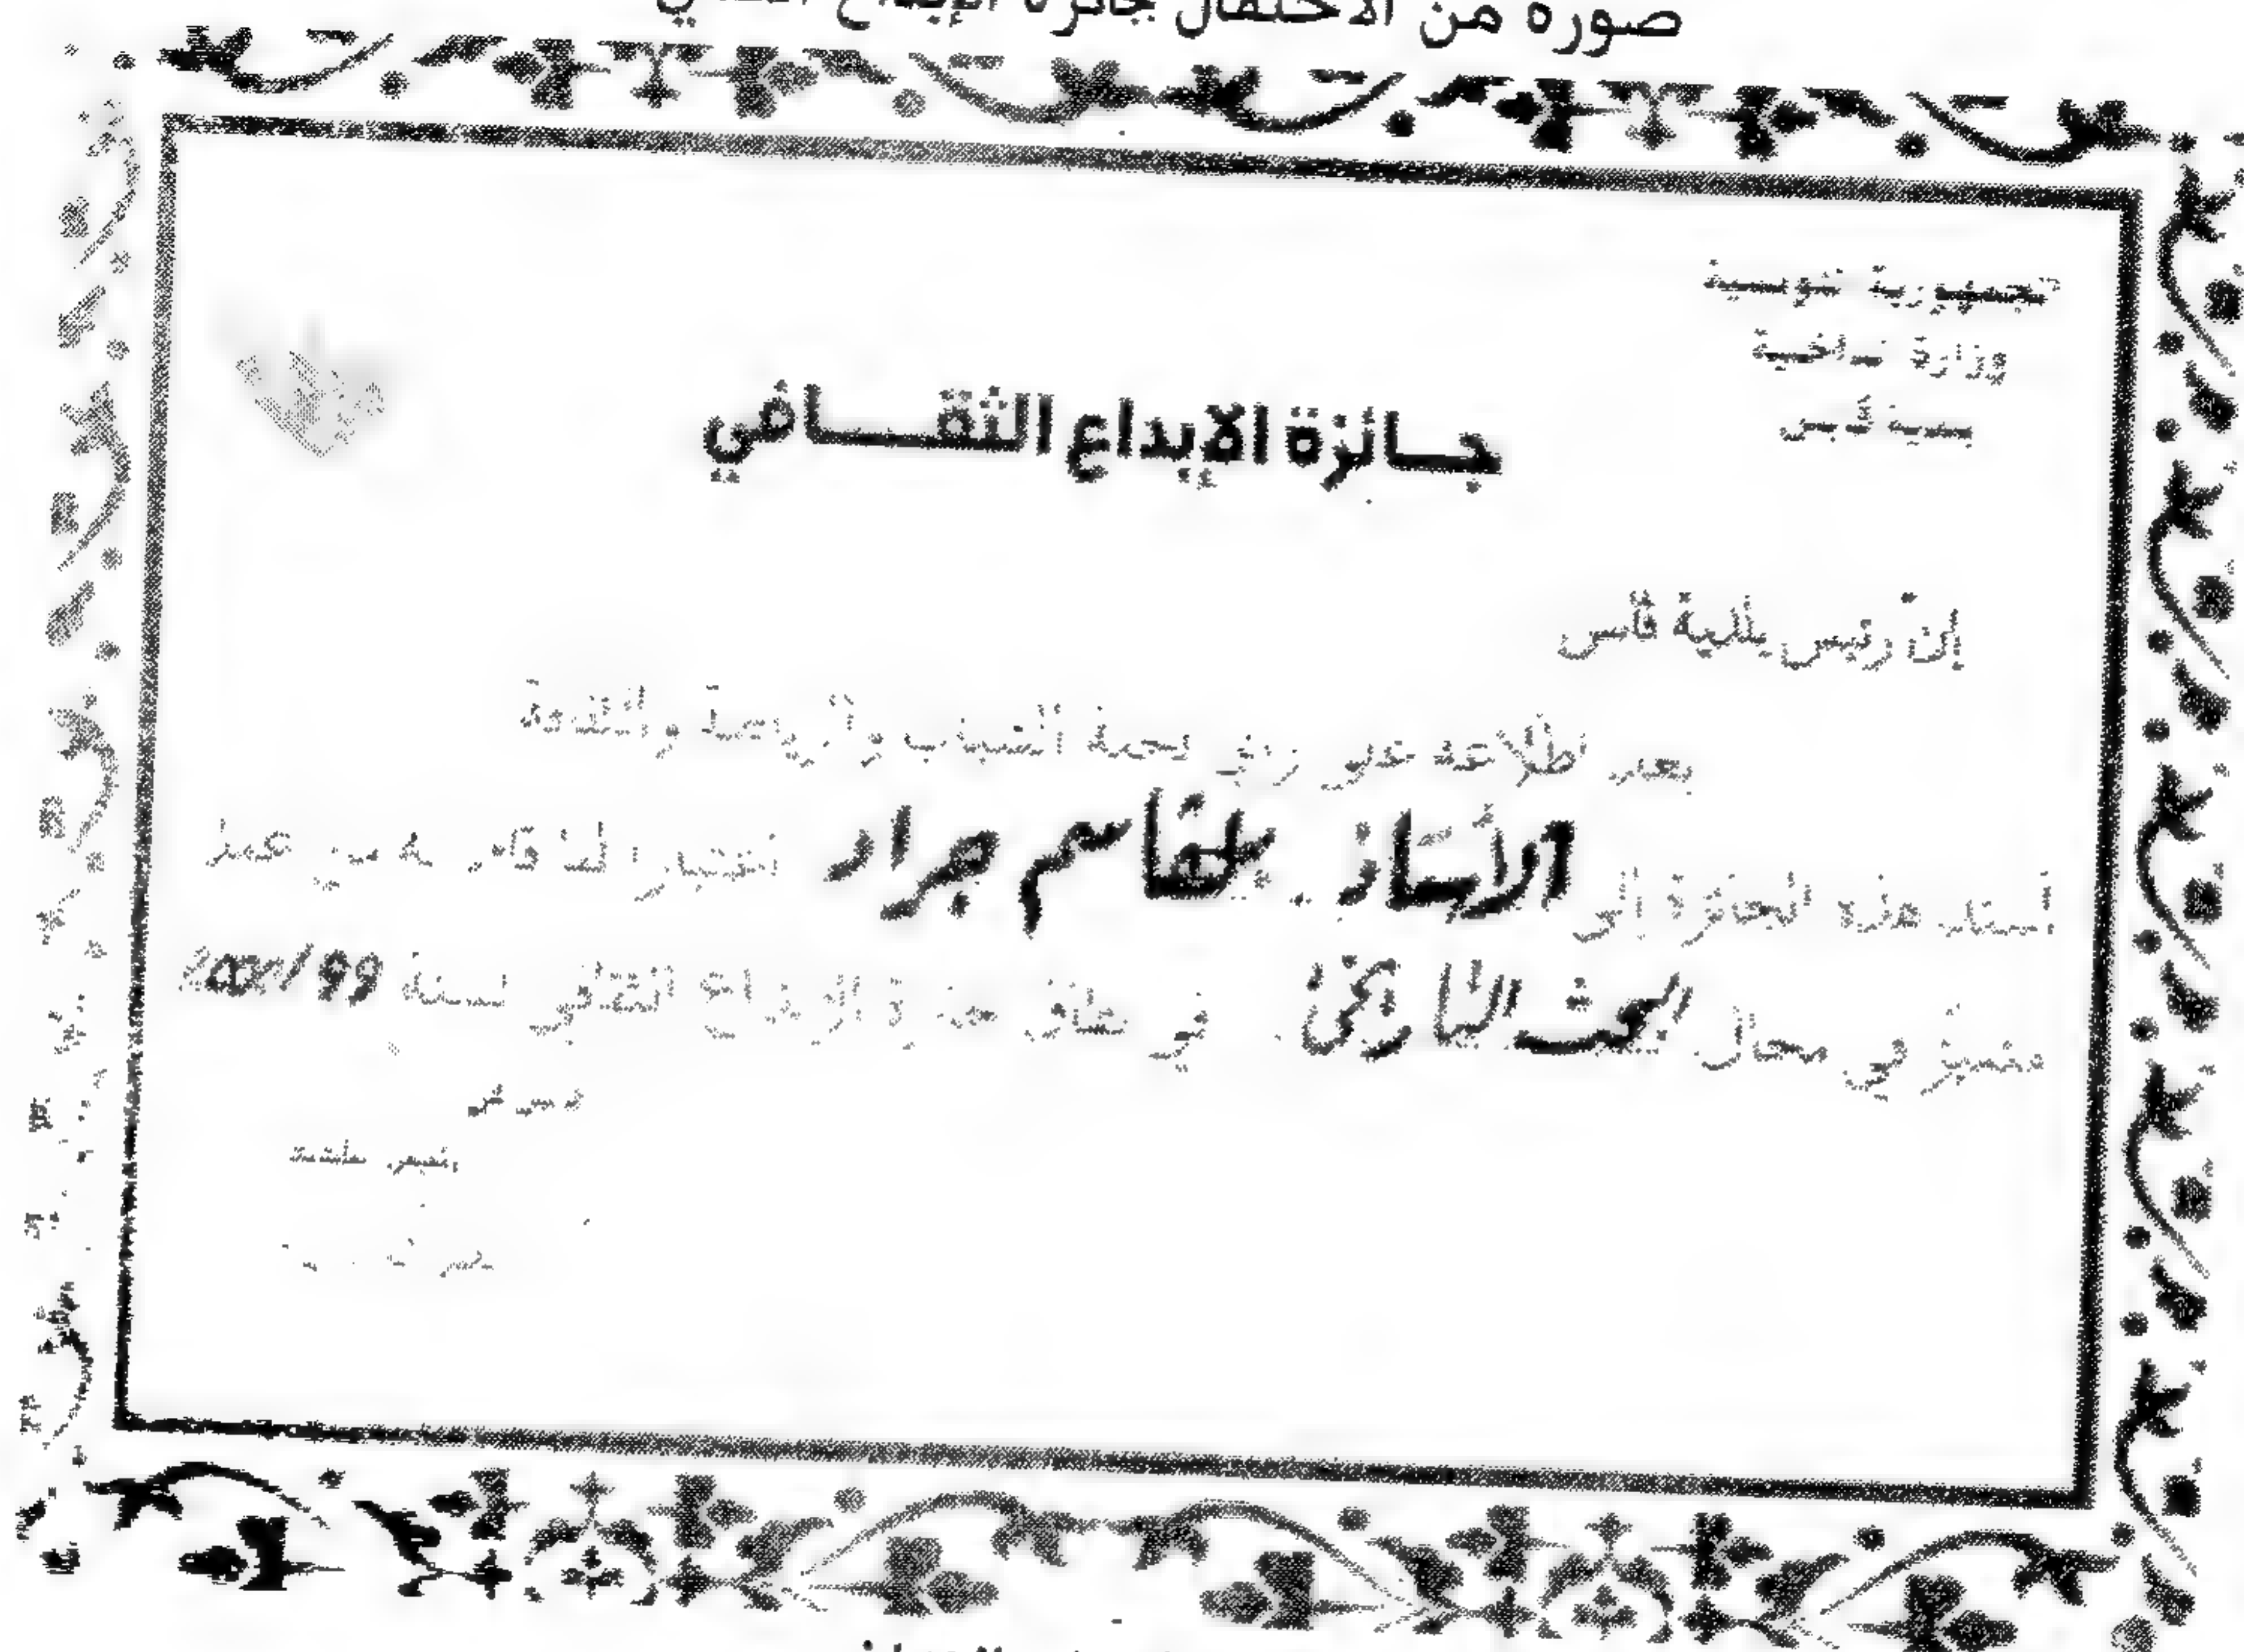 صورة من الاحتفال جائزة الإبداع الثقافي
الجمهورية التونسية
وزارة الداخلية
بلدية قابس
جائزة الإبداع الثقافي
إنّ رئيس بلدية قابس
بعد اطلاعه على رأي لجنة الشباب والرياضة والثقافة
أسند هذه الجائزة إلى الأستاذ بلقاسم جراد اعتبارا لما قام به من عمل
متميز في مجال البحث التاريخي في نطاق جائزة الإبداع الثقافي لسنة 99/2000
رئيس بلدية